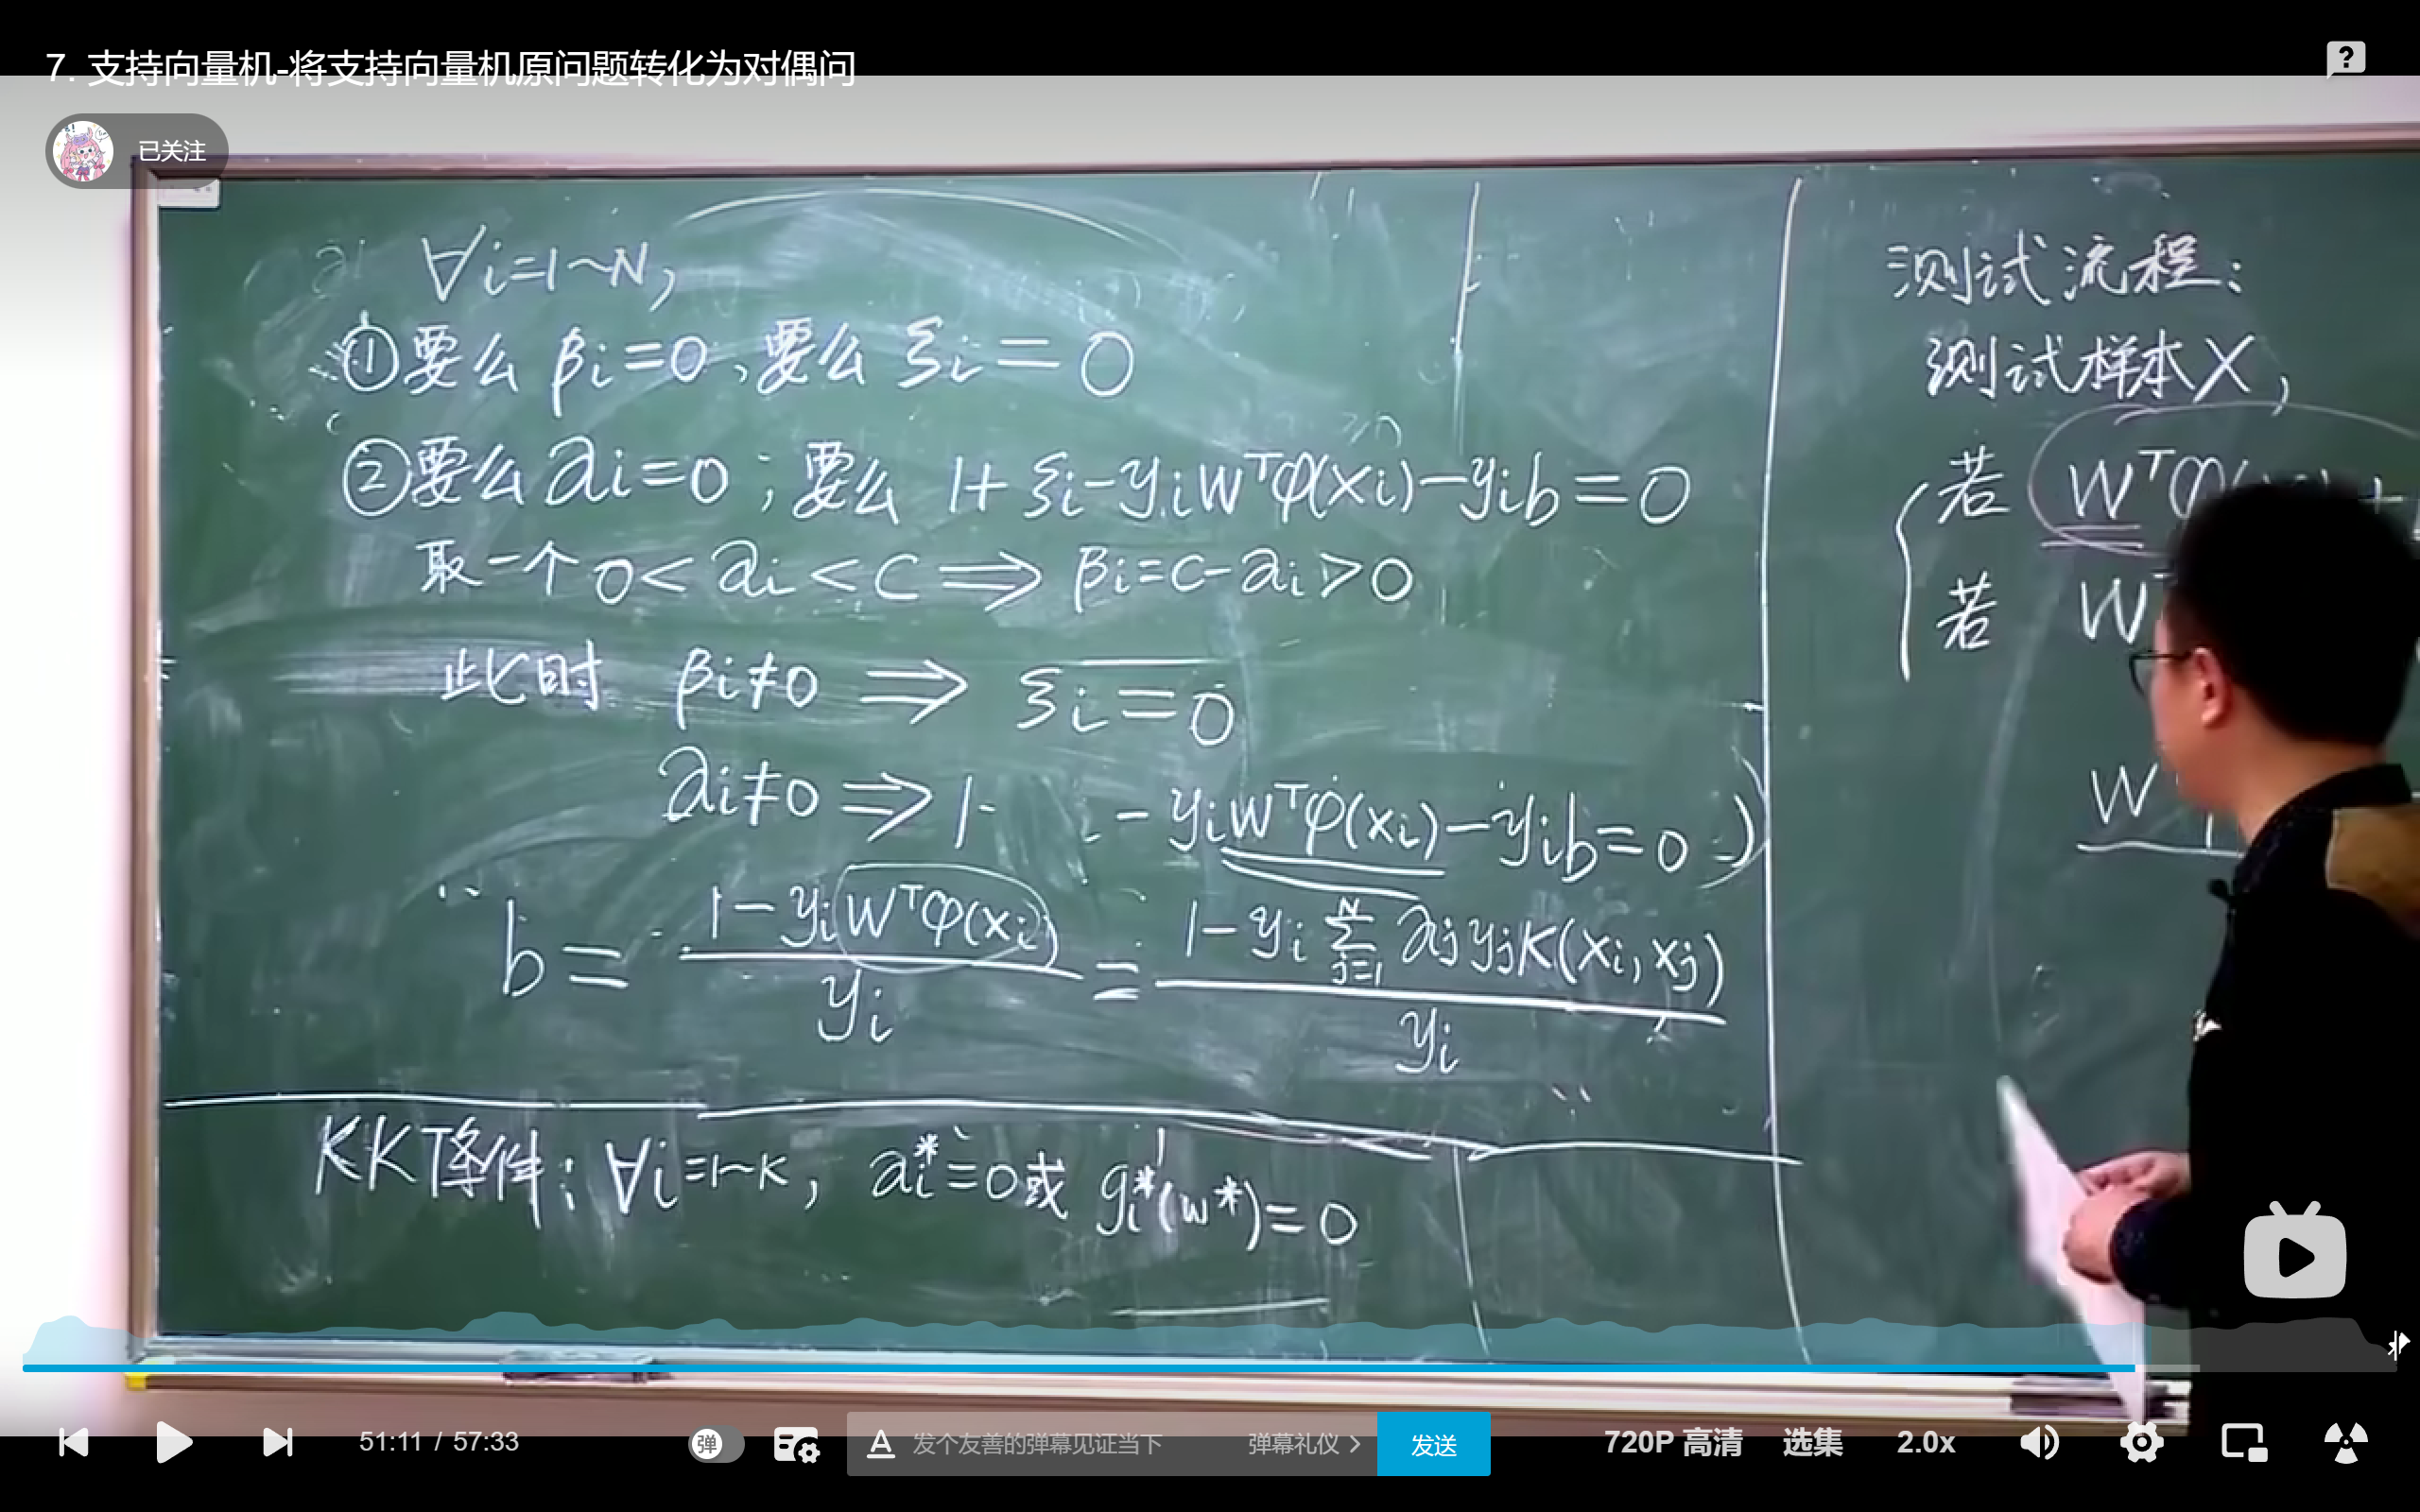 7. 支持向量机-将支持向量机原问题转化为对偶问
已关注
∀i=1~N,
①要么 βi=0,要么 ξi=0
②要么 ai=0;要么 1+ξi-yiWᵀφ(xi)-yib=0
取一个 0<ai<C⇒βi=C-ai>0
此时 βi≠0 ⇒ ξi=0
ai≠0⇒1- -yiWᵀφ(xi)-yib=0
b= (1-yiWᵀφ(xi))/yi = (1-yi∑_{j=1}^{N} ajyjK(xi,xj))/yi
KKT条件:∀i=1~K, ai*=0或 gi*(w*)=0
测试流程:
测试样本X,
若 Wᵀφ
若 Wᵀ
W
51:11 / 57:33
弹
发个友善的弹幕见证当下
弹幕礼仪 >
发送
720P 高清
选集
2.0x